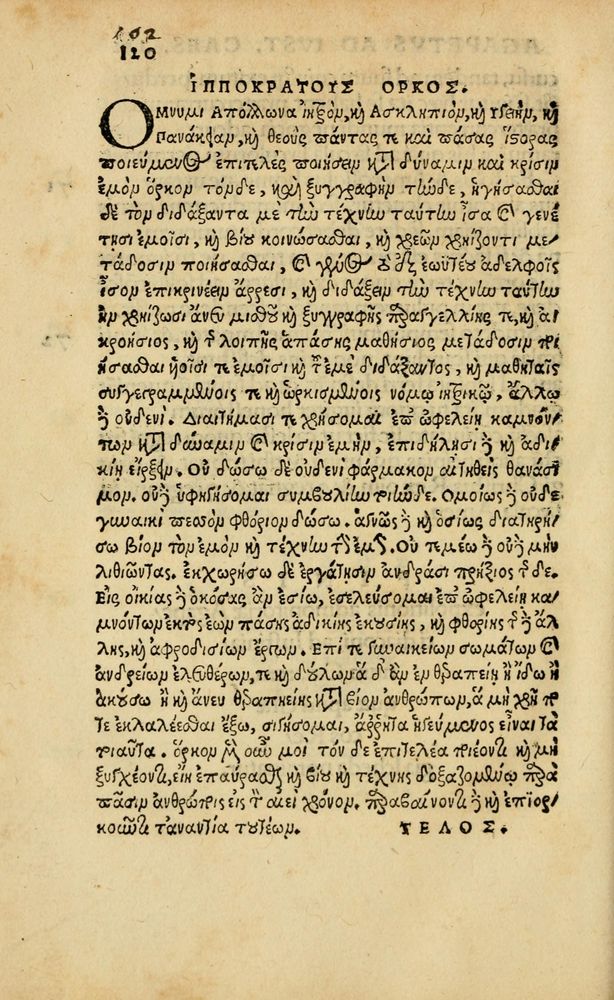 162
120
ΙΠΠΟΚΡΑΤΟΥΣ ΟΡΚΟΣ.
Ομνυμι Απόλλωνα ἰητρὸν, καὶ Ασκληπιὸν, καὶ Υγείην, καὶ
Πανάκειαν, καὶ θεοὺς πάντας τε καὶ πάσας ἵστορας
ποιεύμενος ἐπιτελέα ποιήσειν κατὰ δύναμιν καὶ κρίσιν
ἐμὴν ὅρκον τόνδε, καὶ ξυγγραφὴν τήνδε, ἡγήσασθαι
δὲ τὸν διδάξαντα με τὴν τέχνην ταύτην ἶσα καὶ γενέ
τῃσι ἐμοῖσι, καὶ βίου κοινώσασθαι, καὶ χρεῶν χρηίζοντι με-
τάδοσιν ποιήσασθαι, καὶ γένος τὸ ἐξ ἑωϋτέου ἀδελφοῖς
ἶσον ἐπικρινέειν ἄρρεσι, καὶ διδάξειν τὴν τέχνην ταύτην
ἢν χρηίζωσι ἄνευ μισθοῦ καὶ ξυγγραφῆς παραγγελίης τε, καὶ ἀ-
κροήσιος, καὶ τῆς λοιπῆς ἁπάσης μαθήσιος μετάδοσιν ποι
ήσασθαι υἱοῖσί τε ἐμοῖσι καὶ τοῦ ἐμὲ διδάξαντος, καὶ μαθηταῖς
συγγεγραμμένοις τε καὶ ὡρκισμένοις νόμῳ ἰητρικῷ, ἄλλῳ
δὲ οὐδενί. Διαιτήμασί τε χρήσομαι ἐπ' ὠφελείῃ καμνόν-
των κατὰ δύναμιν καὶ κρίσιν ἐμὴν, ἐπὶ δηλήσει δὲ καὶ ἀδι-
κίῃ εἴρξειν. Οὐ δώσω δὲ οὐδενὶ φάρμακον αἰτηθεὶς θανάσι
μον. οὐδὲ ὑφηγήσομαι συμβουλίην τοιήνδε. Ομοίως δὲ οὐδὲ
γυναικὶ πεσσὸν φθόριον δώσω. ἁγνῶς δὲ καὶ ὁσίως διατηρή-
σω βίον τὸν ἐμὸν καὶ τέχνην τὴν ἐμήν. Οὐ τεμέω δὲ οὐδὲ μὴν
λιθιῶντας. ἐκχωρήσω δὲ ἐργάτῃσιν ἀνδράσι πρήξιος τῆς δε.
Εἰς οἰκίας δὲ ὁκόσας ἂν ἐσίω, ἐσελεύσομαι ἐπ' ὠφελείῃ κα-
μνόντων ἐκτὸς ἐὼν πάσης ἀδικίης ἑκουσίης, καὶ φθορίης τῆς δὲ ἄλ
λης, καὶ ἀφροδισίων ἔργων. Επί τε γυναικείων σωμάτων καὶ
ἀνδρείων ἐλευθέρων, τε καὶ δούλων ἃ δ' ἂν ἐν θεραπείῃ ἢ ἴδω ἢ
ἀκούσω ἢ καὶ ἄνευ θεραπηείης κατὰ βίον ἀνθρώπων, ἃ μὴ χρή πο
τε ἐκλαλέεσθαι ἔξω, σιγήσομαι, ἄρρητα ἡγεύμενος εἶναι τὰ
τοιαῦτα. ὅρκον μὲν οὖν μοι τόν δε ἐπιτελέα ποιέοντι καὶ μὴ
ξυγχέοντι, εἴη ἐπαύρασθαι καὶ βίου καὶ τέχνης δοξαζομένῳ παρὰ
πᾶσιν ἀνθρώποις εἰς τὸν αἰεὶ χρόνον. παραβαίνοντι δὲ καὶ ἐπιορ-
κοῦντι τἀναντία τουτέων. ΤΕΛΟΣ.